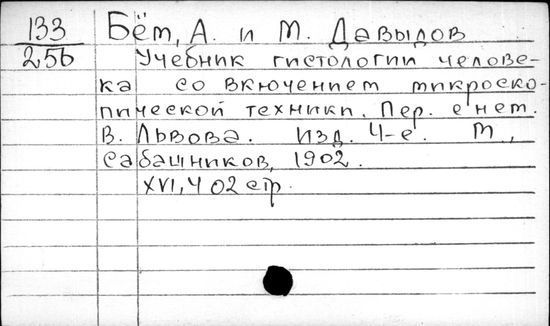 133 Бём, А. и М. Давыдов
256 Учебник гистологии челове-
ка со включением микроско-
пической техники. Пер. с нет.
В. Львова. Изд. 4-е. М.,
Сабашников, 1902.
XVI, 402 стр.